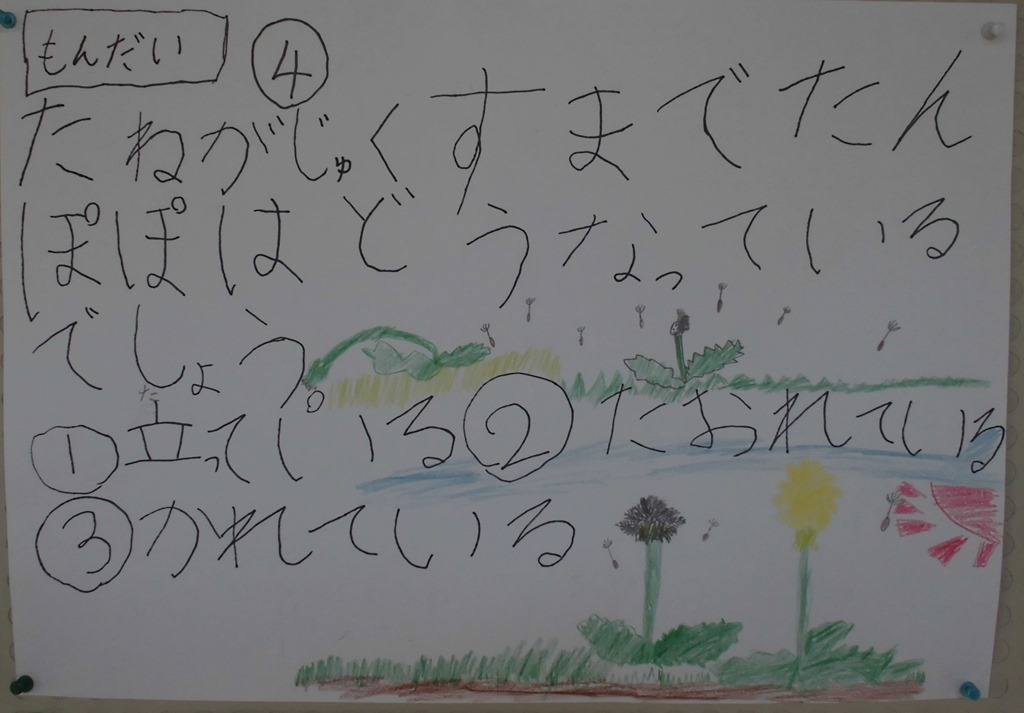 もんだい ④
たねがじゅくすまでたん
ぽぽはどうなっている
でしょう。
た
①立っている②たおれている
③かれている